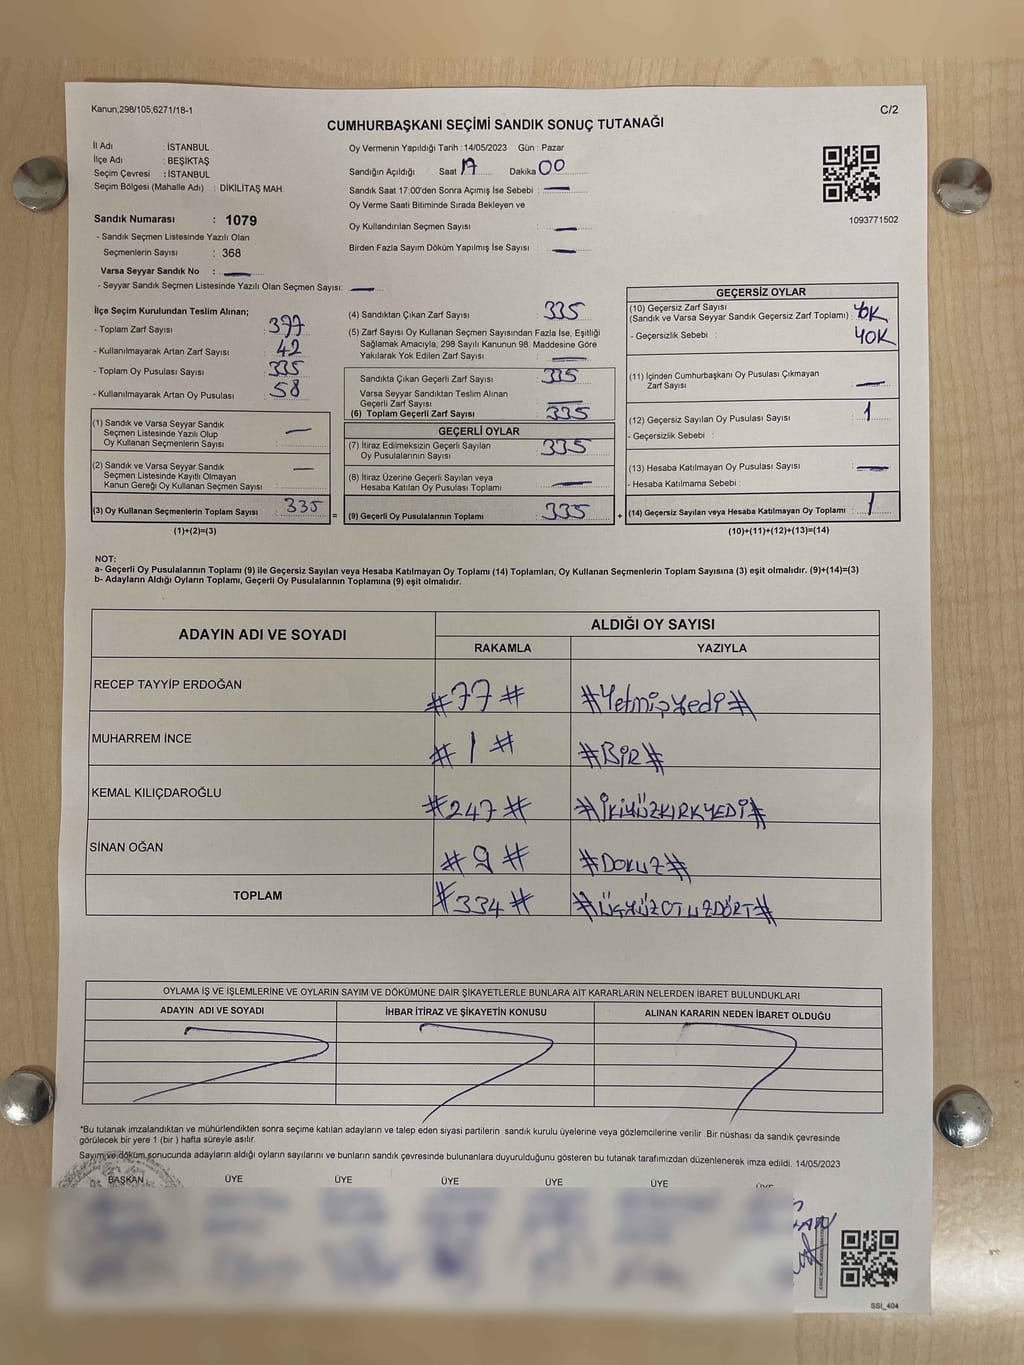 Kanun;298/105;6271/18-1
C/2
CUMHURBAŞKANI SEÇİMİ SANDIK SONUÇ TUTANAĞI
İl Adı : İSTANBUL
İlçe Adı : BEŞİKTAŞ
Seçim Çevresi : İSTANBUL
Seçim Bölgesi (Mahalle Adı) : DİKİLİTAŞ MAH.
Sandık Numarası : 1079
- Sandık Seçmen Listesinde Yazılı Olan
Seçmenlerin Sayısı : 368
Varsa Seyyar Sandık No :
- Seyyar Sandık Seçmen Listesinde Yazılı Olan Seçmen Sayısı:
Oy Vermenin Yapıldığı Tarih :14/05/2023 Gün : Pazar
Sandığın Açıldığı Saat 17 Dakika 00
Sandık Saat 17:00'den Sonra Açımış İse Sebebi :
Oy Verme Saati Bitiminde Sırada Bekleyen ve
Oy Kullandırılan Seçmen Sayısı :
Birden Fazla Sayım Döküm Yapılmış İse Sayısı :
1093771502
İlçe Seçim Kurulundan Teslim Alınan;
- Toplam Zarf Sayısı : 377
- Kullanılmayarak Artan Zarf Sayısı : 42
- Toplam Oy Pusulası Sayısı : 335
- Kullanılmayarak Artan Oy Pusulası : 58
(1) Sandık ve Varsa Seyyar Sandık
Seçmen Listesinde Yazılı Olup
Oy Kullanan Seçmenlerin Sayısı :
(2) Sandık ve Varsa Seyyar Sandık
Seçmen Listesinde Kayıtlı Olmayan
Kanun Gereği Oy Kullanan Seçmen Sayısı :
(3) Oy Kullanan Seçmenlerin Toplam Sayısı : 335
(1)+(2)=(3)
=
(4) Sandıktan Çıkan Zarf Sayısı : 335
(5) Zarf Sayısı Oy Kullanan Seçmen Sayısından Fazla İse, Eşitliği
Sağlamak Amacıyla, 298 Sayılı Kanunun 98. Maddesine Göre
Yakılarak Yok Edilen Zarf Sayısı :
Sandıkta Çıkan Geçerli Zarf Sayısı : 335
Varsa Seyyar Sandıktan Teslim Alınan
Geçerli Zarf Sayısı :
(6) Toplam Geçerli Zarf Sayısı : 335
GEÇERLİ OYLAR
(7) İtiraz Edilmeksizin Geçerli Sayılan
Oy Pusulalarının Sayısı : 335
(8) İtiraz Üzerine Geçerli Sayılan veya
Hesaba Katılan Oy Pusulası Toplamı :
(9) Geçerli Oy Pusulalarının Toplamı : 335
+
GEÇERSİZ OYLAR
(10) Geçersiz Zarf Sayısı
(Sandık ve Varsa Seyyar Sandık Geçersiz Zarf Toplamı) : YOK
- Geçersizlik Sebebi : YOK
(11) İçinden Cumhurbaşkanı Oy Pusulası Çıkmayan
Zarf Sayısı :
(12) Geçersiz Sayılan Oy Pusulası Sayısı : 1
- Geçersizlik Sebebi :
(13) Hesaba Katılmayan Oy Pusulası Sayısı :
- Hesaba Katılmama Sebebi :
(14) Geçersiz Sayılan veya Hesaba Katılmayan Oy Toplamı : 1
(10)+(11)+(12)+(13)=(14)
NOT:
a- Geçerli Oy Pusulalarının Toplamı (9) ile Geçersiz Sayılan veya Hesaba Katılmayan Oy Toplamı (14) Toplamları, Oy Kullanan Seçmenlerin Toplam Sayısına (3) eşit olmalıdır. (9)+(14)=(3)
b- Adayların Aldığı Oyların Toplamı, Geçerli Oy Pusulalarının Toplamına (9) eşit olmalıdır.
ADAYIN ADI VE SOYADI
ALDIĞI OY SAYISI
RAKAMLA YAZIYLA
RECEP TAYYİP ERDOĞAN #77# #Yetmişyedi#
MUHARREM İNCE #1# #BİR#
KEMAL KILIÇDAROĞLU #247# #İKİYÜZKIRKYEDİ#
SİNAN OĞAN #9# #DOKUZ#
TOPLAM #334# #ÜÇYÜZOTUZDÖRT#
OYLAMA İŞ VE İŞLEMLERİNE VE OYLARIN SAYIM VE DÖKÜMÜNE DAİR ŞİKAYETLERLE BUNLARA AİT KARARLARIN NELERDEN İBARET BULUNDUKLARI
ADAYIN ADI VE SOYADI İHBAR İTİRAZ VE ŞİKAYETİN KONUSU ALINAN KARARIN NEDEN İBARET OLDUĞU
*Bu tutanak imzalandıktan ve mühürlendikten sonra seçime katılan adayların ve talep eden siyasi partilerin sandık kurulu üyelerine veya gözlemcilerine verilir .Bir nüshası da sandık çevresinde
görülecek bir yere 1 (bir ) hafta süreyle asılır.
Sayım ve döküm sonucunda adayların aldığı oyların sayılarını ve bunların sandık çevresinde bulunanlara duyurulduğunu gösteren bu tutanak tarafımızdan düzenlenerek imza edildi. 14/05/2023
BAŞKAN ÜYE ÜYE ÜYE ÜYE ÜYE
SSI_404